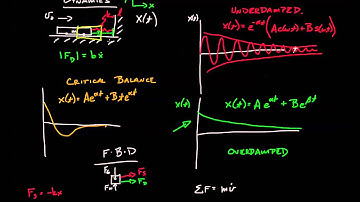 DYNAMICS
x
v₀
X(t)
|F_D| = bẋ
UNDERDAMPED.
x(t) = e^-αt (A c(ωt) + B s(ωt))
CRITICAL BALANCE
x(t) = A e^αt + B t e^αt
x(t)
x(t) = A e^αt + B e^βt
OVERDAMPED
F.B.D
F_S
F_D
F_S = -kx
ΣF = mv̇